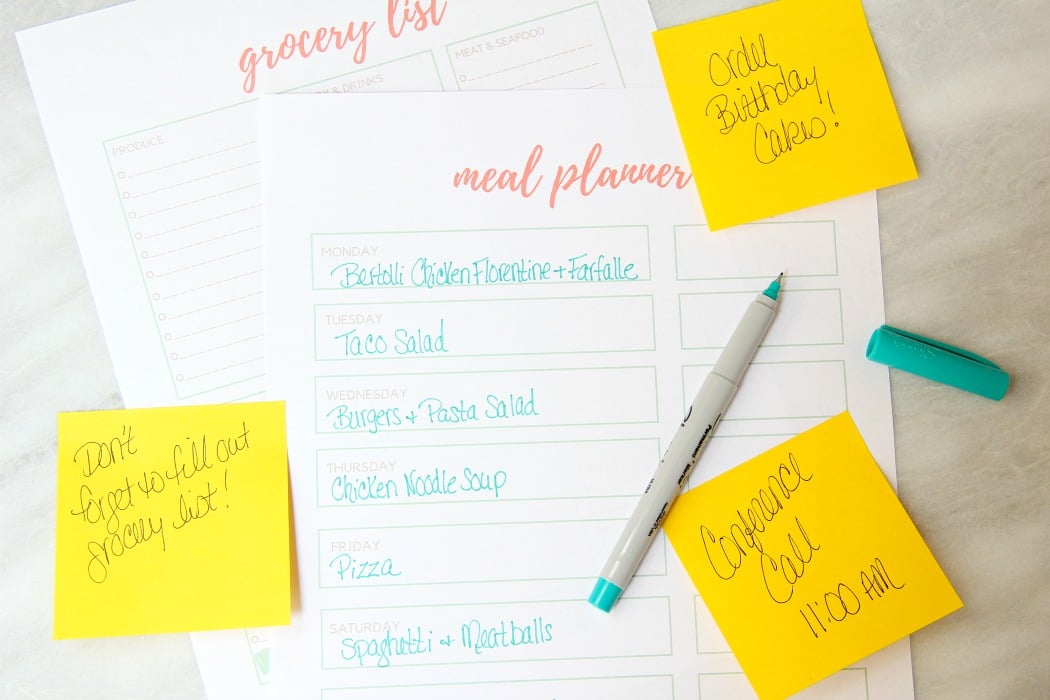 grocery list
& DRINKS
MEAT & SEAFOOD
PRODUCE
Order
Birthday
Cakes!
meal planner
MONDAY
Bertolli Chicken Florentine + Farfalle
TUESDAY
Taco Salad
WEDNESDAY
Burgers + Pasta Salad
THURSDAY
Chicken Noodle Soup
FRIDAY
Pizza
SATURDAY
Spaghetti + Meatballs
Don't
forget to fill out
grocery list!
Conference
Call
11:00 AM